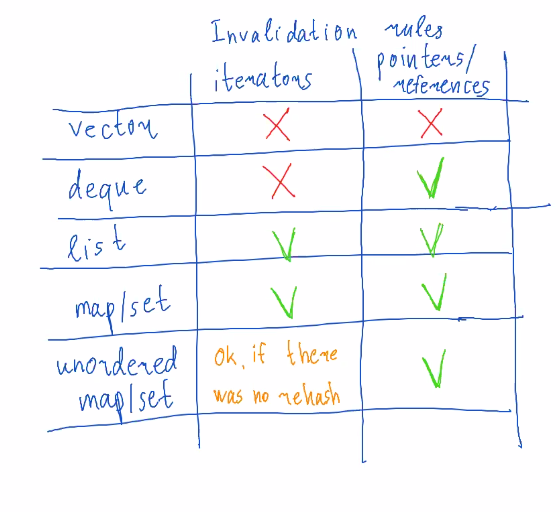 Invalidation rules
iterators pointers/
references
vector X X
deque X V
list V V
map/set V V
unordered
map/set ok, if there
was no rehash V